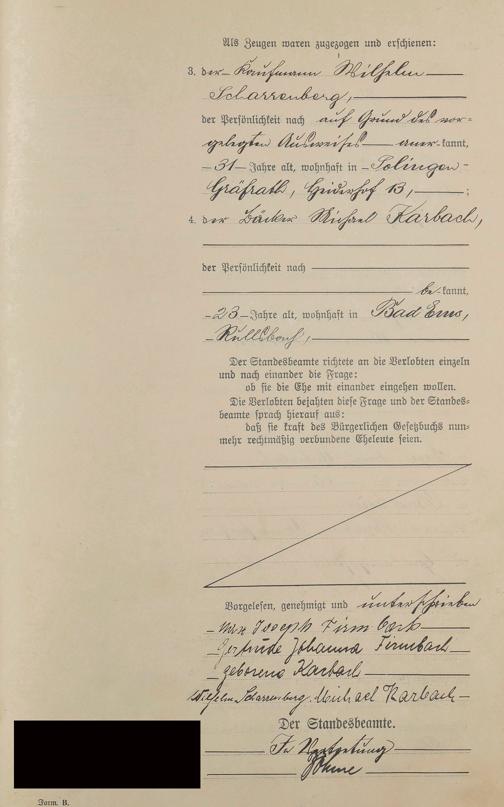 Als Zeugen waren zugezogen und erschienen:
3. der Kaufmann Wilhelm
Scharrenberg,
der Persönlichkeit nach auf Grund des vor-
gelegten Ausweises aner-kannt,
31 Jahre alt, wohnhaft in Solingen-
Gräfrath, Heiderhof 13, ;
4. der Bäcker Michael Karbach,
der Persönlichkeit nach
be-kannt,
23 Jahre alt, wohnhaft in Bad Ems,
Der Standesbeamte richtete an die Verlobten einzeln
und nach einander die Frage:
ob sie die Ehe mit einander eingehen wollen.
Die Verlobten bejahten diese Frage und der Standes-
beamte sprach hierauf aus:
daß sie kraft des Bürgerlichen Gesetzbuchs nun-
mehr rechtmäßig verbundene Eheleute seien.
Vorgelesen, genehmigt und unterschrieben
Joseph Firmbach
Gertrude Johanna Firmbach
geborene Karbach
Wilhelm Scharrenberg. Michael Karbach
Der Standesbeamte.
In Vertretung
Form. B.